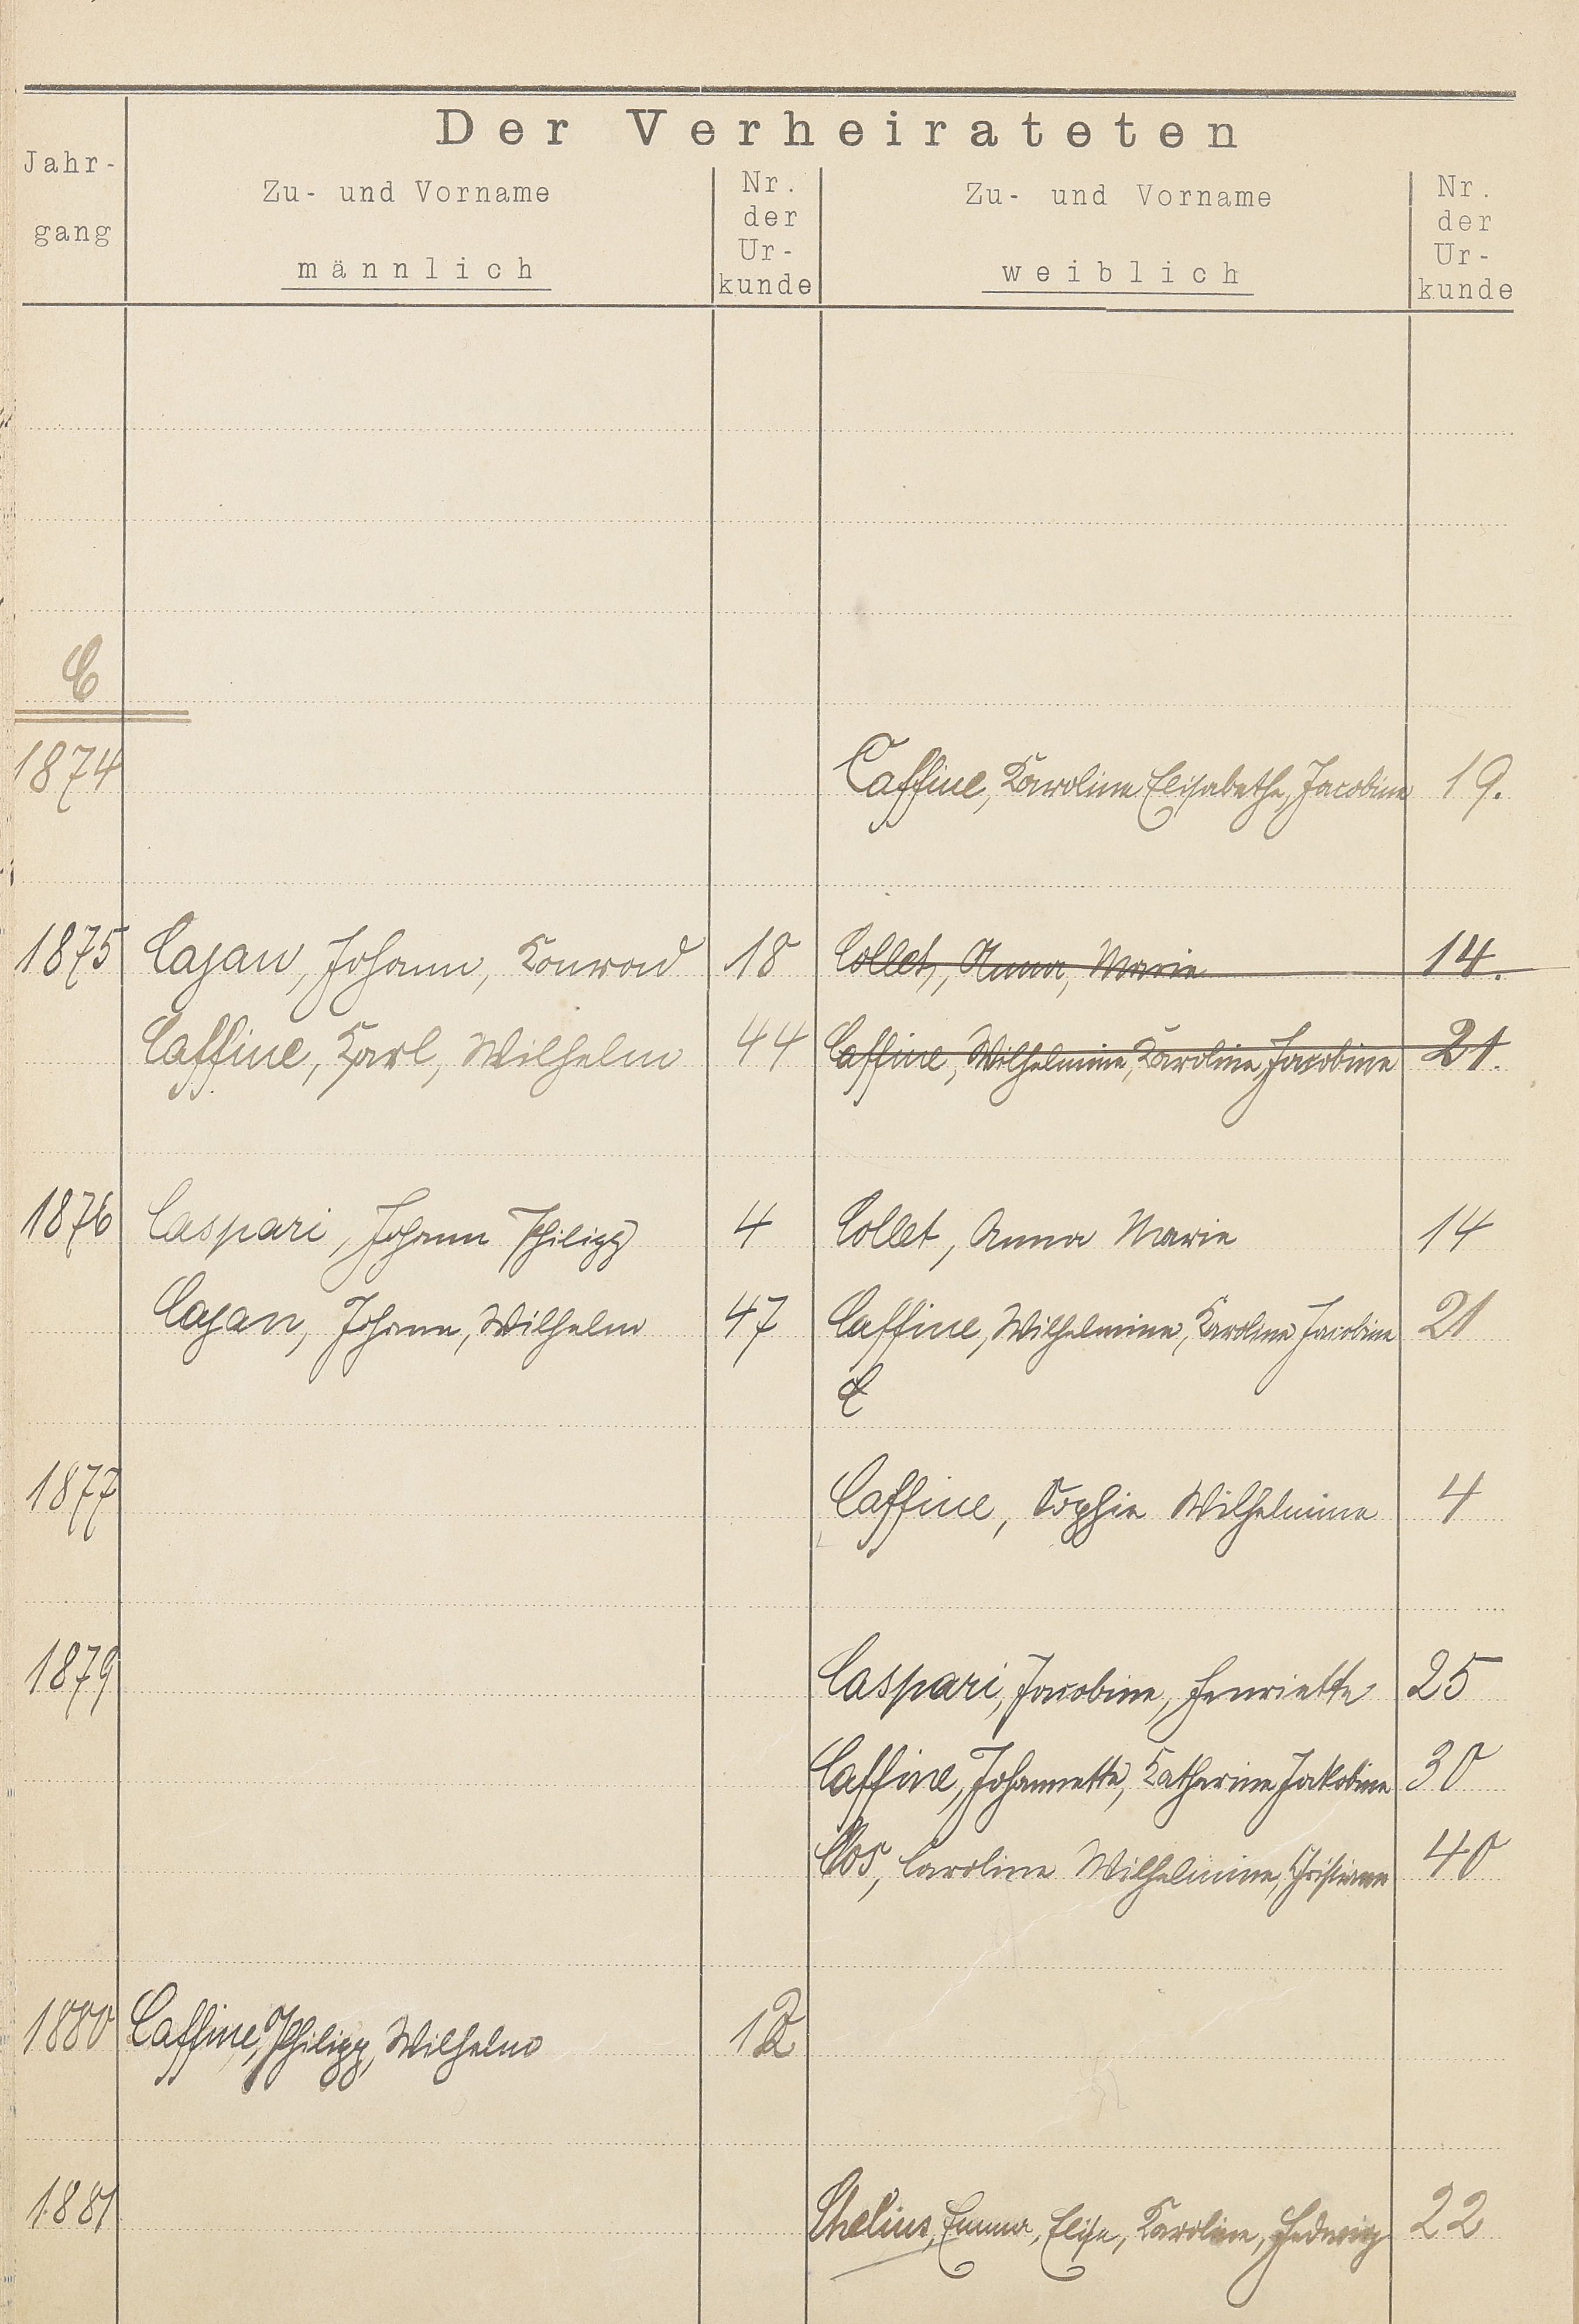 Der Verheirateten
Jahr-
gang
Zu- und Vorname
männlich
Nr.
der
Ur-
kunde
Zu- und Vorname
weiblich
Nr.
der
Ur-
kunde
C
1874 Caffine, Karoline Elisabethe, Jacobine 19.
1875 Cajan, Johann, Konrad 18 Collet, Anna, Marie 14.
Caffine, Karl, Wilhelm 44 Caffine, Wilhelmine, Karoline, Jacobine 21.
1876 Caspari, Johann Philipp 4 Collet, Anna Marie 14
Cajan, Johann, Wilhelm 47 Caffine, Wilhelmine, Karoline Jacobine 21
1877 Caffine, Sophie Wilhelmine 4
1879 Caspari, Jacobine, Henriette 25
Caffine, Johannette, Katharine Jakobine 30
Clos, Caroline Wilhelmine, Christiane 40
1880 Caffine, Philipp, Wilhelm 12
1881 Chelius, Emma, Elise, Karoline, Hedwig 22